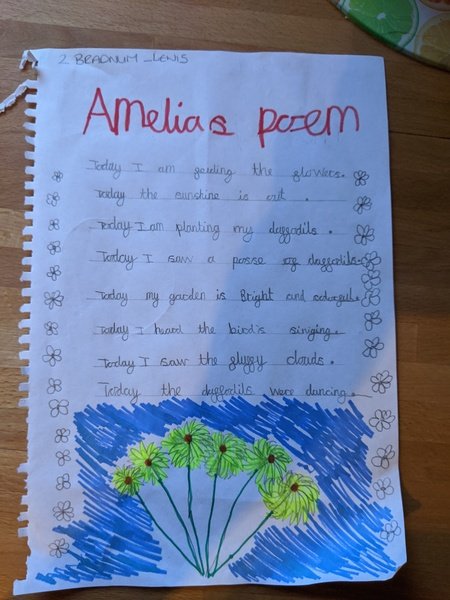 2. BRADNUM _LEWIS
Amelias poem
Today I am the flowers.
Today the sunshine is out .
Today I am planting my daffodils .
Today I saw a posse of daffodils.
Today my garden is Bright and colorful.
Today I heard the birds singing.
Today I saw the fluffy clouds.
Today the daffodils were dancing.